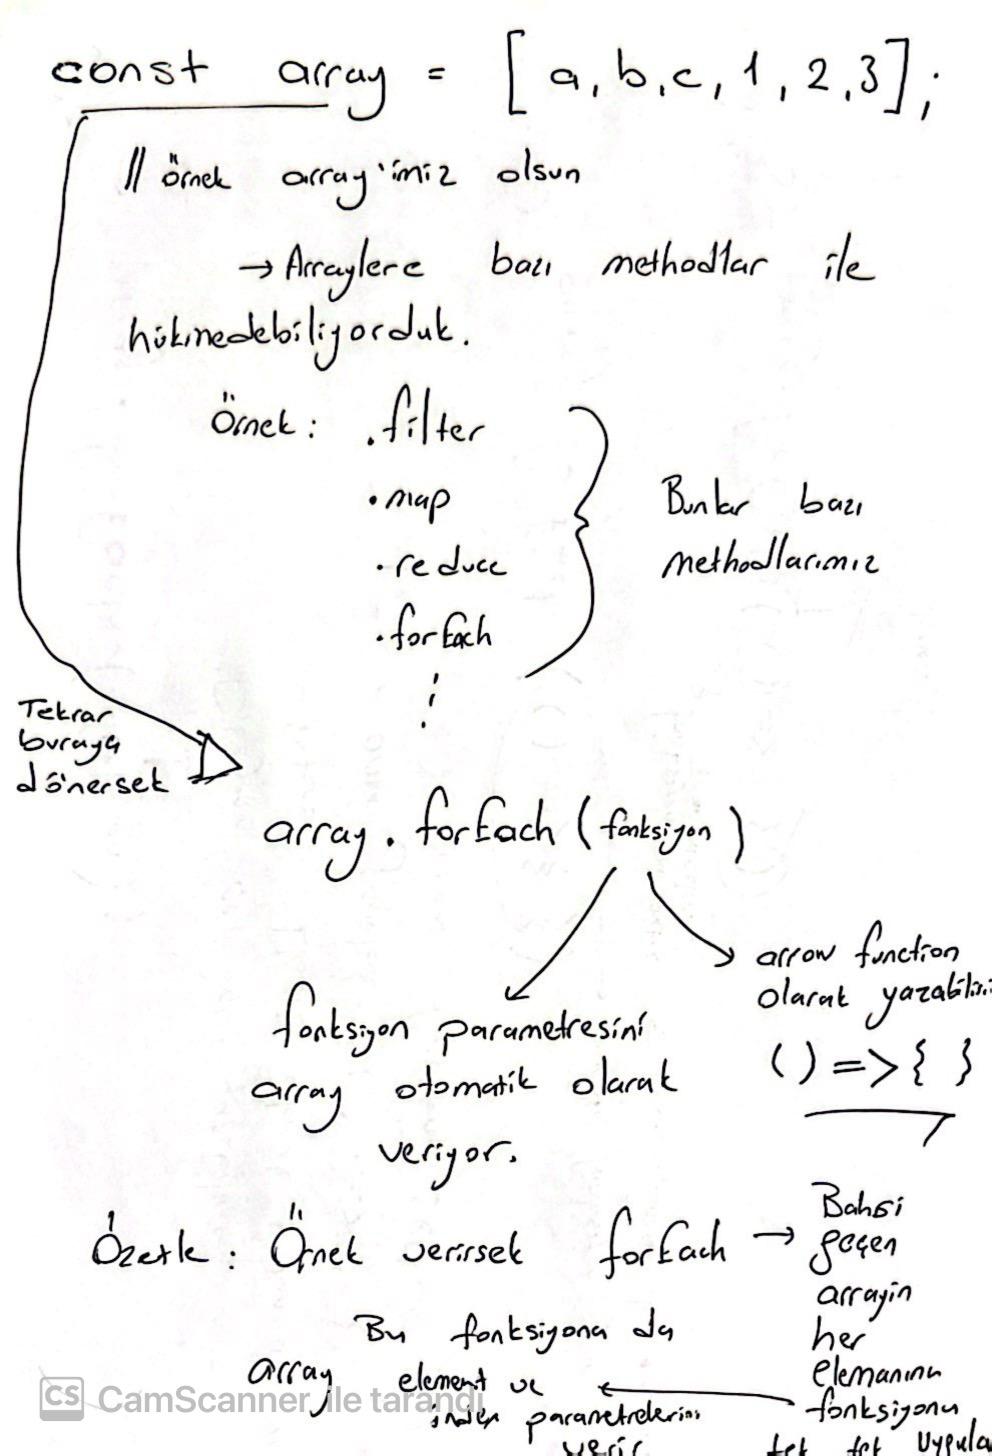 const array = [a,b,c,1,2,3];
// örnek array'imiz olsun
→ Arraylere bazı methodlar ile
hükmedebiliyorduk.
Örnek: .filter
.map
.reduce
.forEach
Bunlar bazı
methodlarımız
Tekrar
buraya
dönersek
array.forEach(fonksiyon)
arrow function
olarak yazabiliriz
() => { }
fonksiyon parametresini
array otomatik olarak
veriyor.
Özetle: Örnek verirsek forEach →
Bahsi
geçen
arrayin
her
elemanına
fonksiyonu
tek tek uygula
Bu fonksiyona da
array element ve
index parametrelerini
verir
CS CamScanner ile tarandı